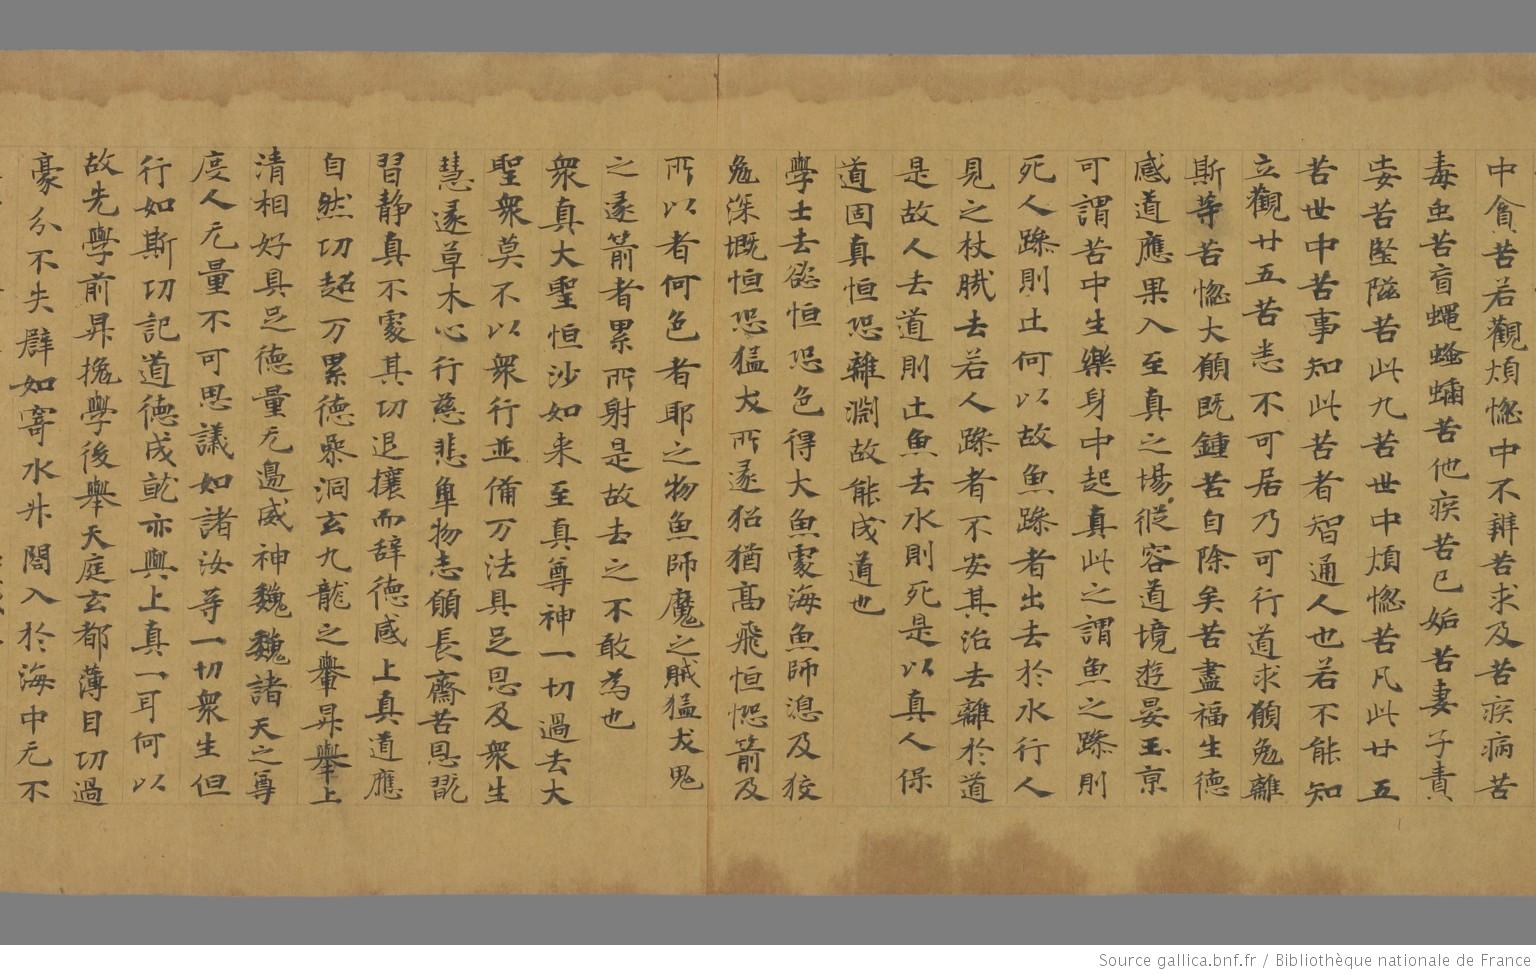 中貪苦若觀煩惱中不辨苦求及苦疾病苦
毒虫苦盲蠅蜂蟎苦他疾苦已姤苦妻子責
苦此九苦世中煩惱苦凡此廿五
苦世中苦事知此苦者智通人也若不能知
立觀廿五苦苦恚不可居乃可行道求願免離
斯等苦惱大願既鍾苦自除矣苦盡福生德
感道應果入至真之場從容道境遊晏玉京
可謂苦中生樂身中起真此之謂魚之躁則
死人躁則土何以故魚躁者出去於水行人
見之杖𢦤去若人躁者不安其治去離於道
是故人去道則土魚去水則死是以真人保
道固真恒恐離淵故能成道也
學士去欲恒恐色得大魚處海魚師漁及狡
兔深慨恒恐猛犬所逐猶高飛恒恐箭及
所以者何色者耶之物魚師魔之賊猛犬鬼
之逐箭者累所射是故去之不敢為也
衆真大聖恒沙如来至真尊神一切過去大
聖衆莫不以衆行並備万法具足恩及衆生
慧逐草木心行慈悲卑物志願長齋苦思
習静真不處其功退攘而辞德感上真道應
自然切超万累德洞玄九龍之轝昇舉上
清相好具足德量无邊威神巍巍諸天之尊
度人无量不可思議如諸汝等一切衆生但
行如斯功記道德成亦與上真一耳何以
故先學前昇挽學後舉天庭玄都薄目切過
豪分不失譬如寄水升閤入於海中无不